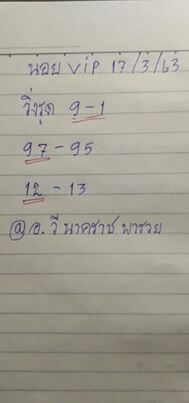 นอย VIP 17/3/63
วิ่งรูด 9-1
97-95
12-13
@อ.วี นาคราช พารวย